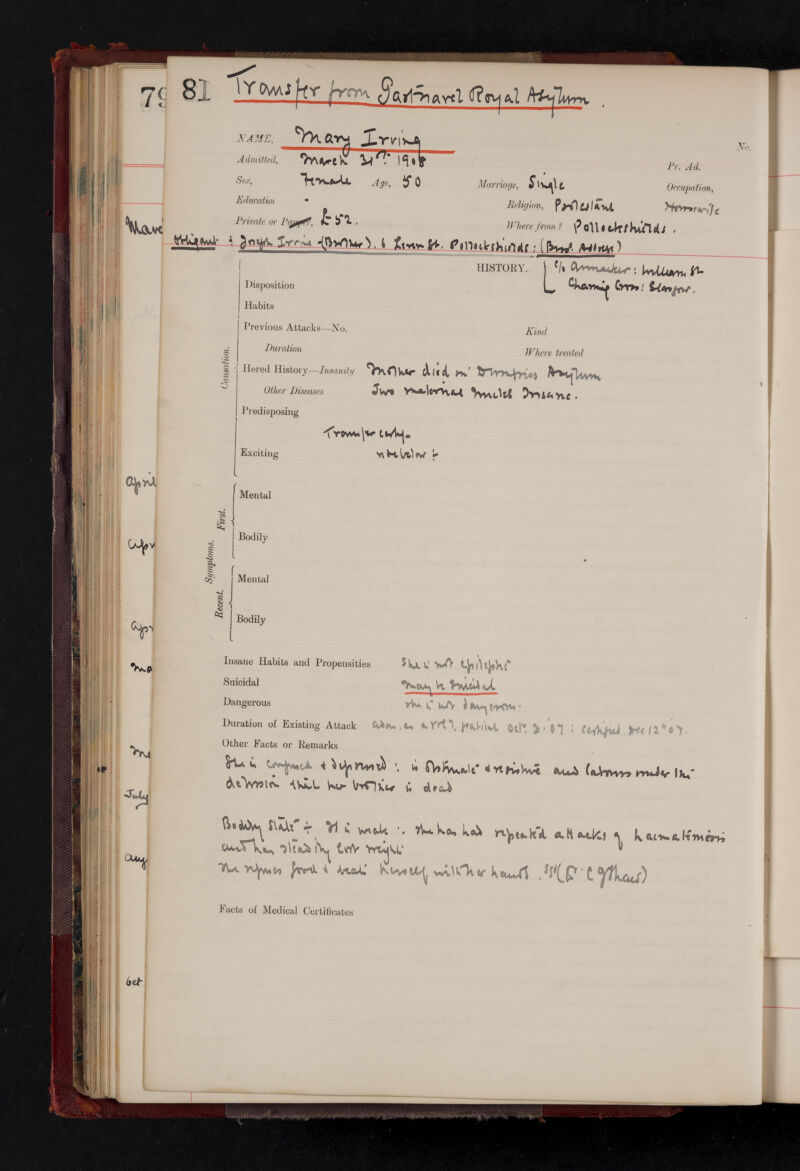 79 81 Transfer from Gartnavel Royal Asylum.
NAME, Mary Irving
No.
Admitted, March 31st 1908
Pr. Ad.
Sex, Female Age, 50 Marriage, Single Occupation,
Education - Religion, Protestant Housewife
Private or Pauper, £52. Where from? Pollockshields.
Marc
Obligant: Joseph Irving (Brother). 6 St. Pollockshields: (Busns. Address)
HISTORY. c/o : William St
Disposition Charing Cross: Glasgow.
Habits
Previous Attacks—No. Kind
Duration Where treated
Causation.
Hered History—Insanity Mother died in Dumfries Asylum
Other Diseases Two maternal Uncles Insane.
Predisposing
Transfer Certif.
Exciting note below :-
April
Mental
First.
Apr
Bodily
Symptoms.
Mental
Recent.
Apr
Bodily
Insane Habits and Propensities She is not epileptic
Ma
Suicidal may be Suicidal
Dangerous she is not dangerous.
Duration of Existing Attack Adm. as a voly. patient Oct. 3. 07 : Certified Dec 12th 07.
Other Facts or Remarks
She is confused & depressed : is Obstinate & resistive and labours under the
July
delusion that her brother is dead
Bodily State :- It is weak :. She has had repeated attacks of haematemesis
and has steadily lost weight
Aug
She refuses food & beats herself with her hands.
Facts of Medical Certificates
Oct